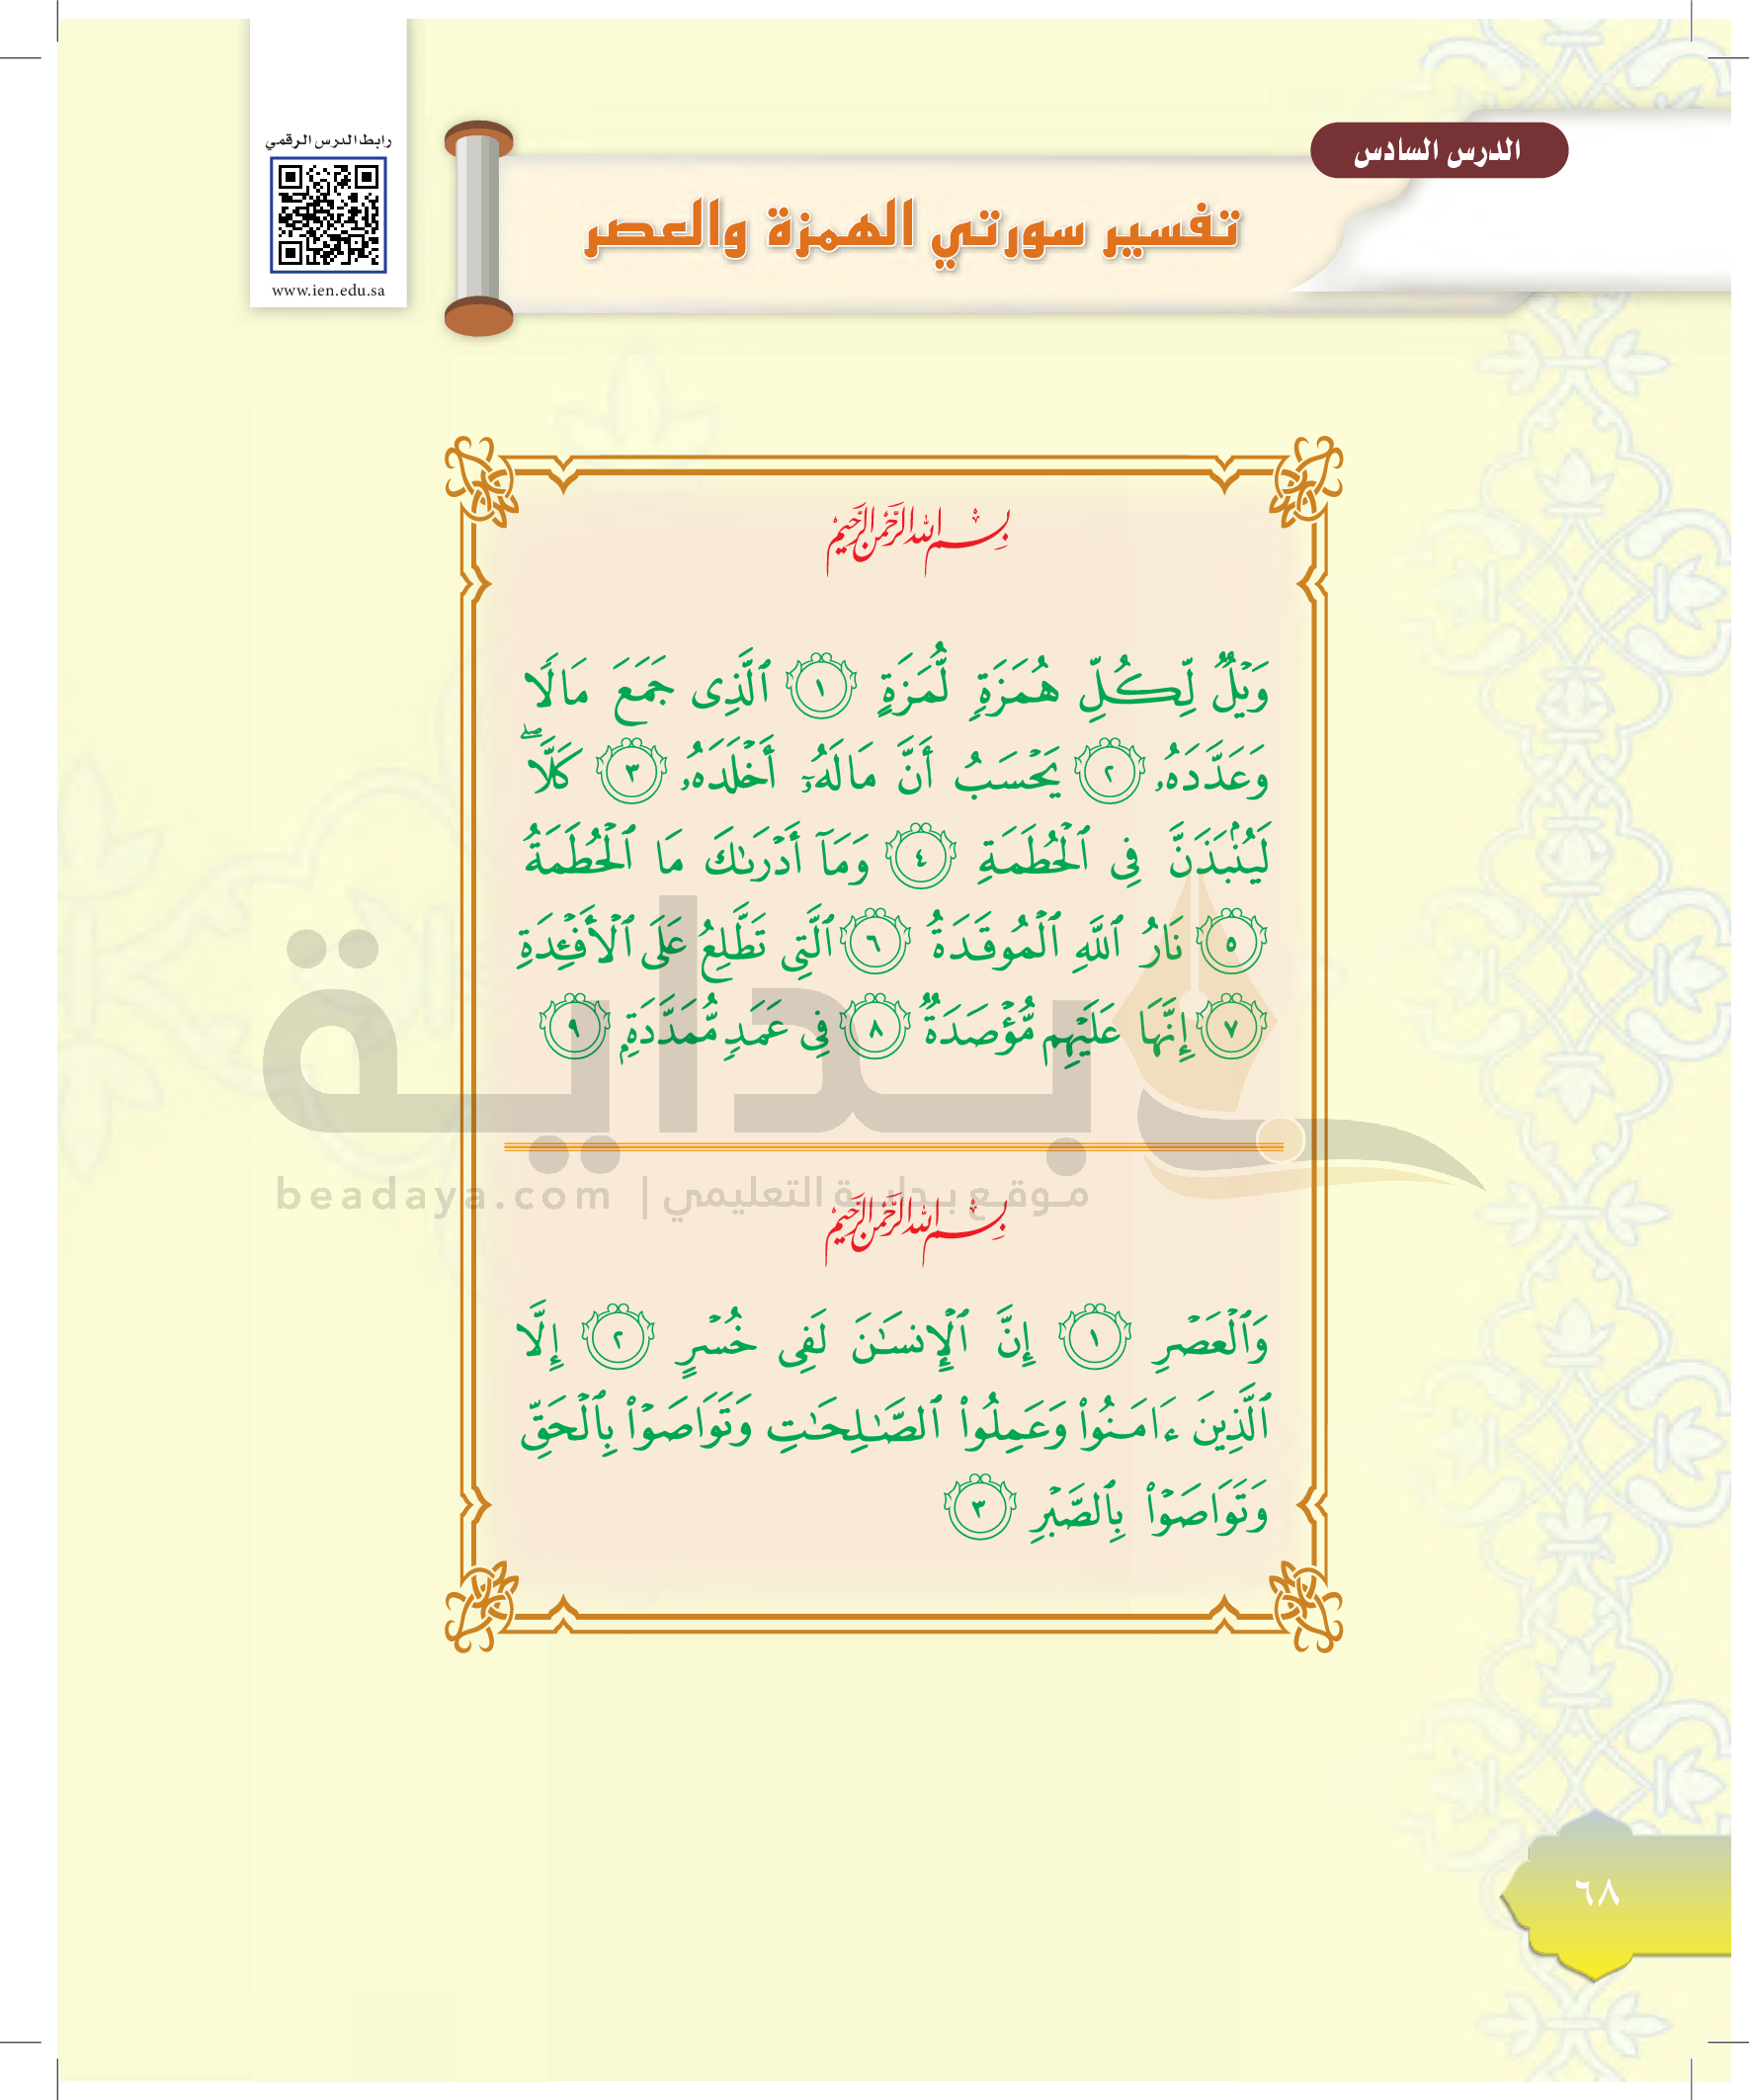 الدرس السادس
رابط الدرس الرقمي
www.ien.edu.sa
تفسير سورتي الهمزة والعصر
بِسْمِ اللهِ الرَّحْمٰنِ الرَّحِيمِ
وَيۡلٌ لِّكُلِّ هُمَزَةٖ لُّمَزَةٍ ١ ٱلَّذِي جَمَعَ مَالٗا
وَعَدَّدَهُۥ ٢ يَحۡسَبُ أَنَّ مَالَهُۥٓ أَخۡلَدَهُۥ ٣ كَلَّاۖ
لَيُنۢبَذَنَّ فِي ٱلۡحُطَمَةِ ٤ وَمَآ أَدۡرَىٰكَ مَا ٱلۡحُطَمَةُ
٥ نَارُ ٱللَّهِ ٱلۡمُوقَدَةُ ٦ ٱلَّتِي تَطَّلِعُ عَلَى ٱلۡأَفۡـِٔدَةِ
٧ إِنَّهَا عَلَيۡهِم مُّؤۡصَدَةٞ ٨ فِي عَمَدٖ مُّمَدَّدَةِۭ ٩
بداية
beadaya.com | موقع بداية التعليمي
بِسْمِ اللهِ الرَّحْمٰنِ الرَّحِيمِ
وَٱلۡعَصۡرِ ١ إِنَّ ٱلۡإِنسَٰنَ لَفِي خُسۡرٍ ٢ إِلَّا
ٱلَّذِينَ ءَامَنُواْ وَعَمِلُواْ ٱلصَّٰلِحَٰتِ وَتَوَاصَوۡاْ بِٱلۡحَقِّ
وَتَوَاصَوۡاْ بِٱلصَّبۡرِ ٣
٦٨